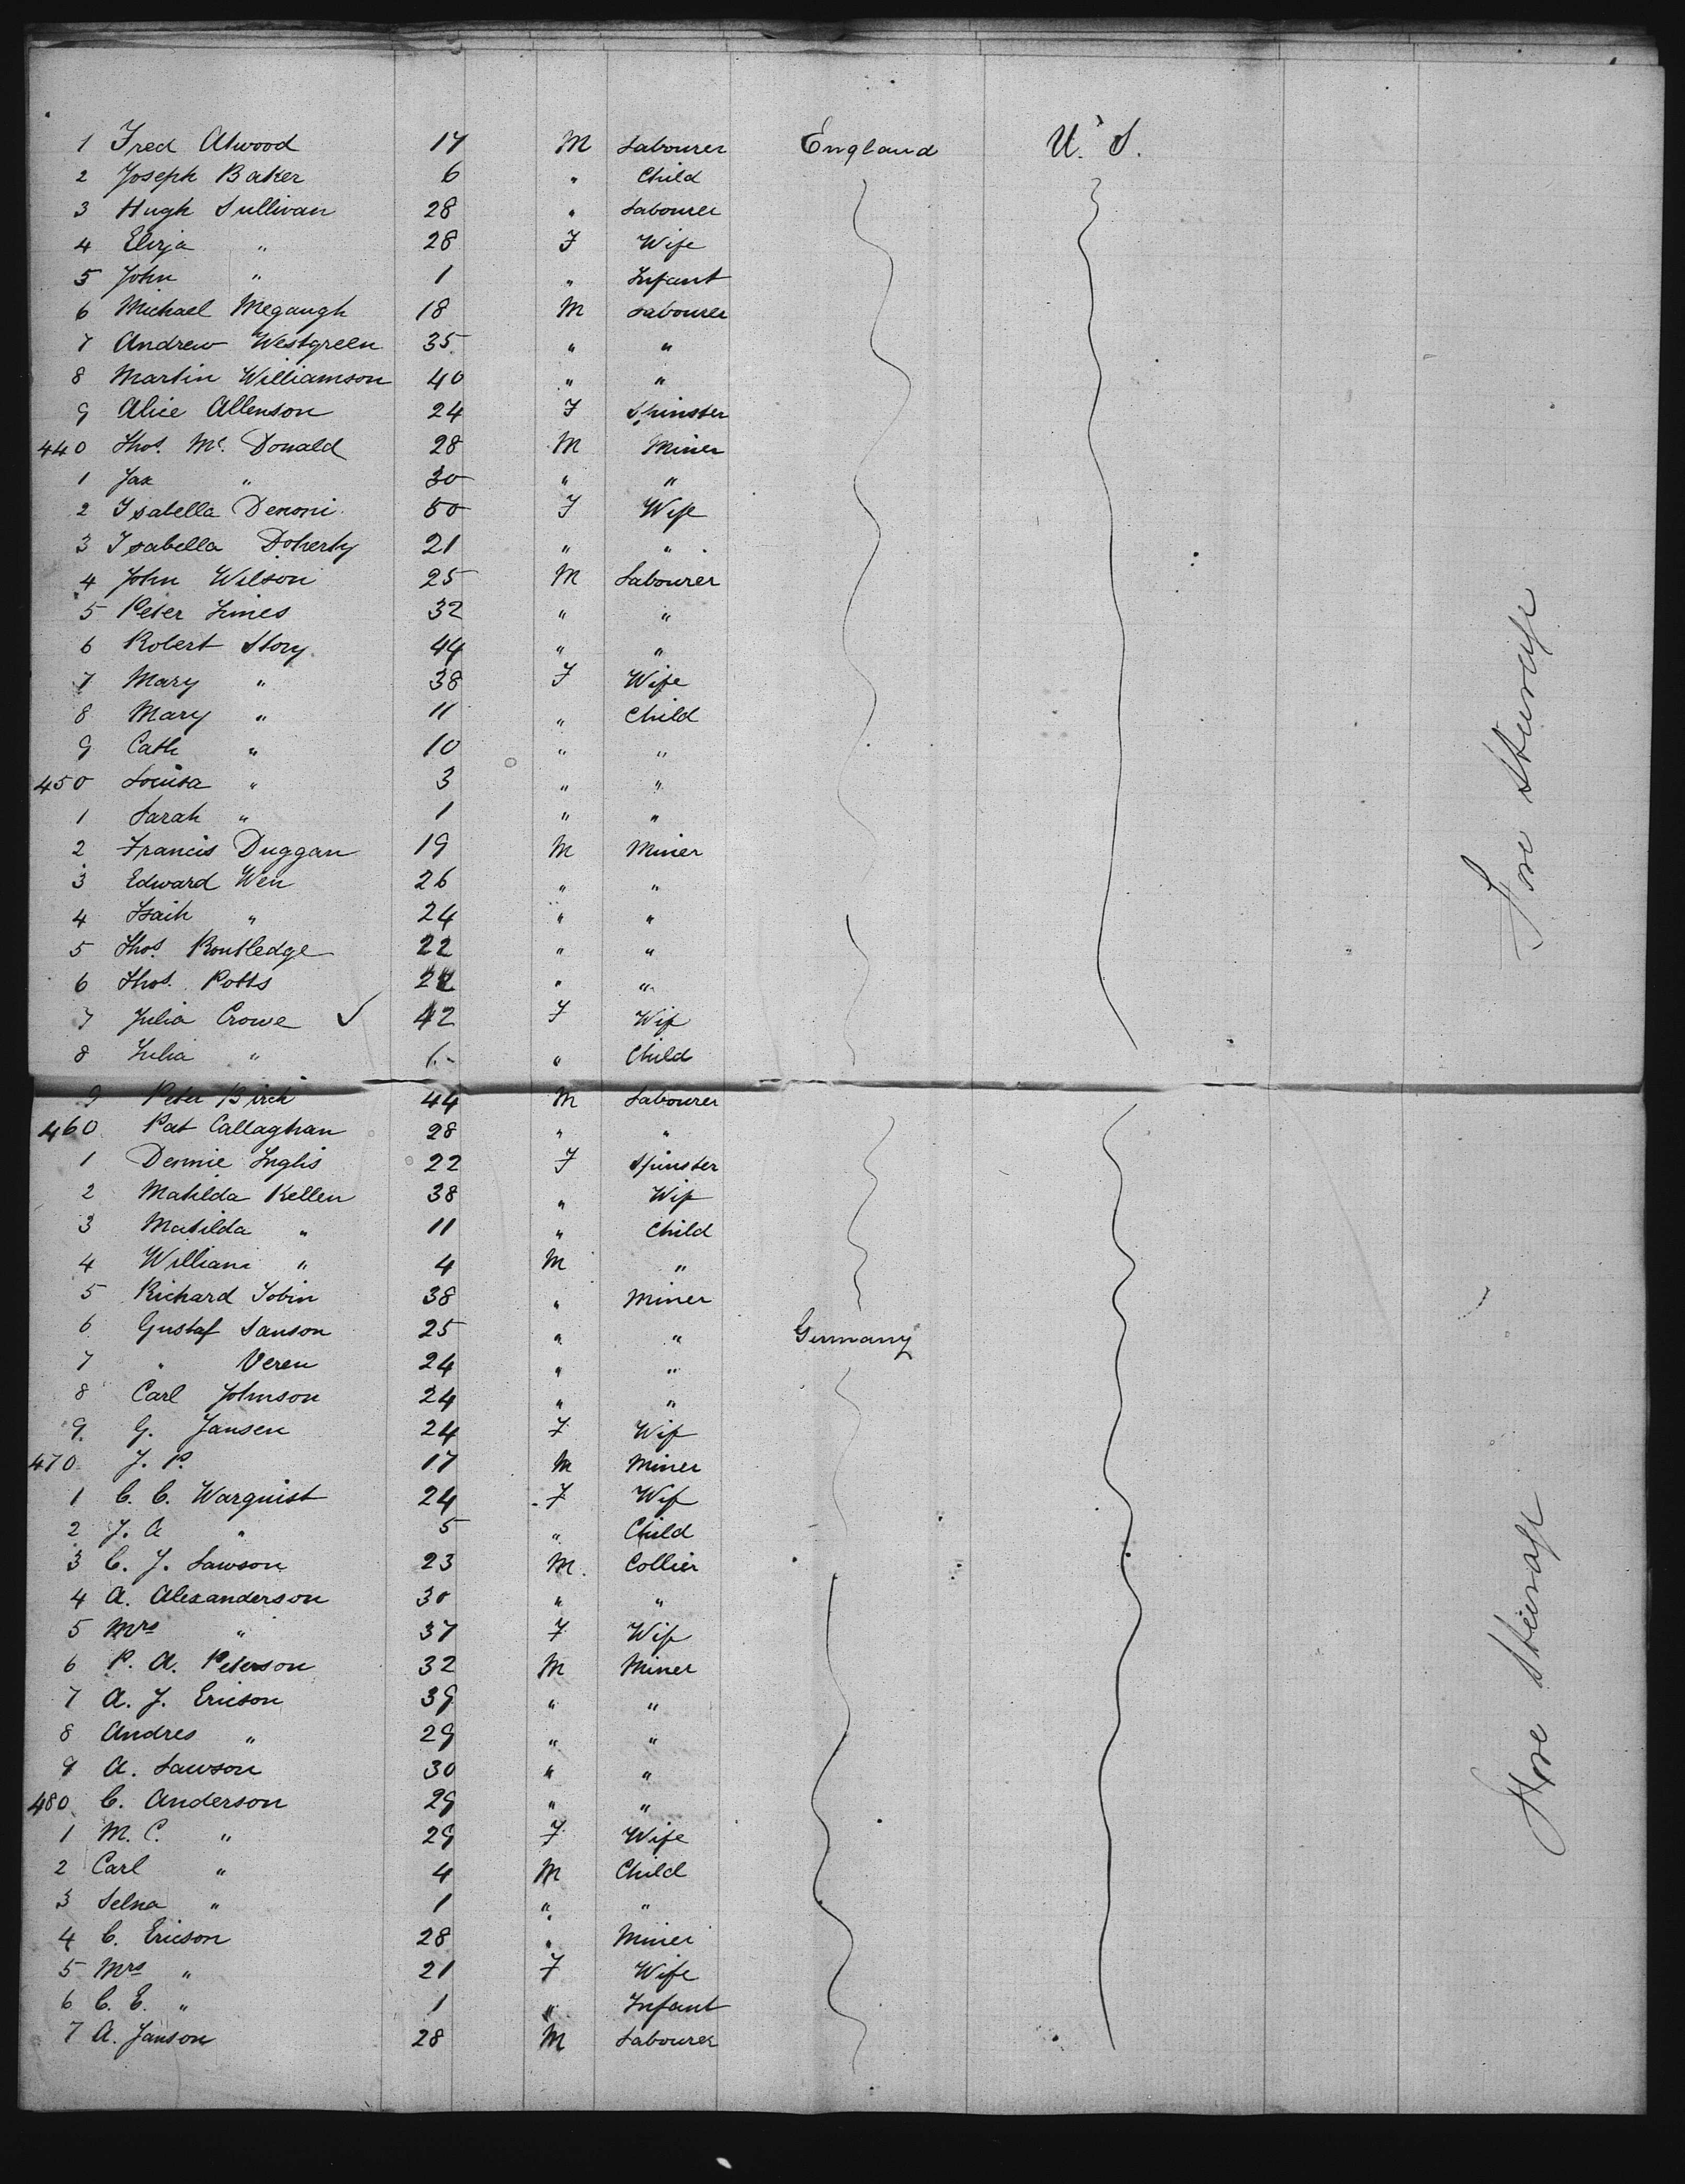 1 Fred Atwood 17 M Labourer England U. S.
2 Joseph Baker 6 " Child
3 Hugh Sullivan 28 " Labourer
4 Eliza " 28 F Wife
5 John " 1 " Infant
6 Michael Megaugh 18 M Labourer
7 Andrew Westgreen 35 " "
8 Martin Williamson 40 " "
9 Alice Allenson 24 F Spinster
440 Thos. Mc. Donald 28 M Miner
1 Jas " 30 " "
2 Isabella 50 F Wife
3 Isabella Doherty 21 " "
4 John Wilson 25 M Labourer
5 Peter 32 " "
6 Robert Story 44 " "
7 Mary " 38 F Wife
8 Mary " 11 " Child
9 Cath " 10 " "
450 Louisa " 3 " "
1 Sarah " 1 " "
2 Francis Duggan 19 M Miner
3 Edward Wen 26 " "
4 Isaih " 24 " "
5 Thos. Routledge 22 " "
6 Thos. Potts " "
7 Julia Crowe ✓ 42 F Wife
8 Julia " " Child
9 Peter Birch 44 M Labourer
460 Pat Callaghan 28 " "
1 Dennie Inglis 22 F Spinster
2 Matilda Kellen 38 " Wife
3 Matilda " 11 " Child
4 William " 4 M "
5 Richard Tobin 38 " Miner
6 Gustaf Sanson 25 " " Germany
7 " Veren 24 " "
8 Carl Johnson 24 " "
9 G. Jansen 24 F Wife
470 J. P. 17 M Miner
1 C. C. Warquist 24 F Wife
2 J. A " 5 " Child
3 C. J. Lawson 23 M. Collier
4 A. Alexanderson 30 " "
5 Mrs " 37 F Wife
6 P. A. Peterson 32 M Miner
7 A. J. Ericson 39 " "
8 Andres " 29 " "
9 A. Lawson 30 " "
480 C. Anderson 29 " "
1 M. C. " 29 F Wife
2 Carl " 4 M Child
3 Selna " 1 " "
4 C. Ericson 28 " Miner
5 Mrs " 21 F Wife
6 C. E. " 1 " Infant
7 A. Janson 28 M Labourer
Fore Steerage
Fore Steerage